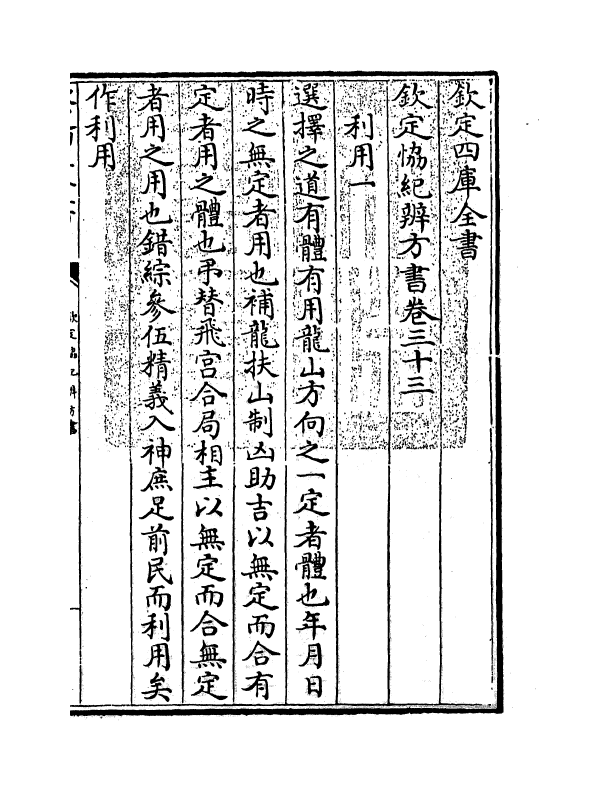 欽定四庫全書
欽定協紀辨方書卷三十三
利用一
選擇之道有體有用龍山方向之一定者體也年月日
時之無定者用也補龍扶山制凶助吉以無定而合有
定者用之體也弔替飛宮合局相主以無定而合無定
者用之用也錯綜參伍精義入神庶足前民而利用矣
作利用